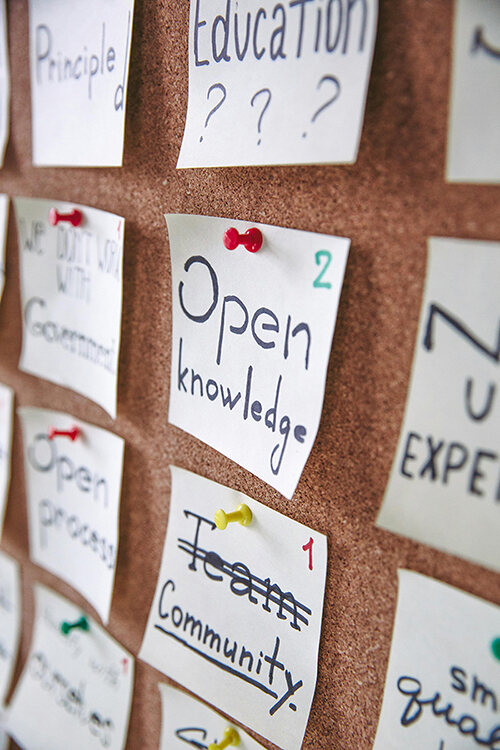 Principle
Education
? ? ?
We DON'T WORK
WITH
Government
2
Open
knowledge
Open
process
1
Team
Community
EXPER
sm